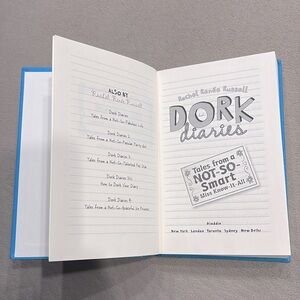 ALSO BY
Rachel Renée Russell
Dork Diaries:
Tales from a Not-So-Fabulous Life
Dork Diaries 2:
Tales from a Not-So-Popular Party Girl
Dork Diaries 3:
Tales from a Not-So-Talented Pop Star
Dork Diaries 3½:
How to Dork Your Diary
Dork Diaries 4:
Tales from a Not-So-Graceful Ice Princess
Rachel Renée Russell
DORK
diaries
Tales from a
NOT-SO-
Smart
Miss Know-It-All
Aladdin
New York London Toronto Sydney New Delhi